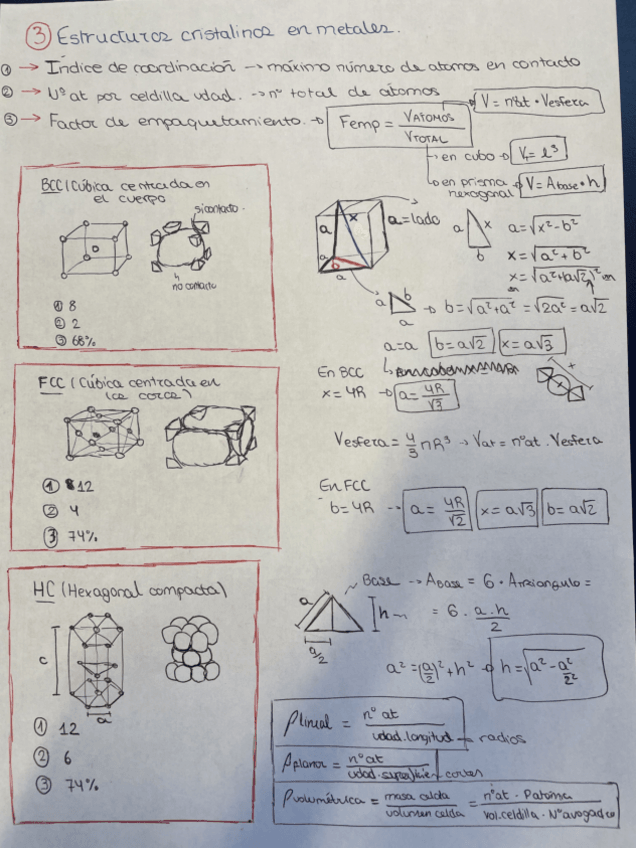 ③ Estructuras cristalinas en metales.
① → Índice de coordinación → máximo número de atomos en contacto
② → Nº at por celdilla udad. → nº total de átomos
③ → Factor de empaquetamiento. → Femp = VATOMOS / VTOTAL
V = nºat · Vesfera
en cubo → VT = l³
en prisma hexagonal → V = Abase · h
BCC (Cúbica centrada en
el cuerpo
si contacto.
no contacto
① 8
② 2
③ 68%
a a a b x
a = lado
a x b
a = √x² - b²
x = √a² + b²
x = √a² + (a√2)²
a b a
→ b = √a² + a² = √2a² = a√2
a = a b = a√2 x = a√3
En BCC
x = 4R → a = 4R / √3
x
Vesfera = 4/3 πR³ → Vat = nºat · Vesfera
FCC (Cúbica centrada en
las caras)
① 12
② 4
③ 74%
En FCC
b = 4R → a = 4R / √2 x = a√3 b = a√2
HC (Hexagonal compacta)
c
a
① 12
② 6
③ 74%
a h a/2
Base → Abase = 6 · Atriangulo =
= 6 · a · h / 2
a² = (a/2)² + h² → h = √a² - a²/2²
ρlineal = nº at / udad. longitud → radios
ρplanar = nº at / udad. superficie
ρvolumétrica = masa celda / volumen celda = nºat · Patomica / vol. celdilla · Nº avogadro